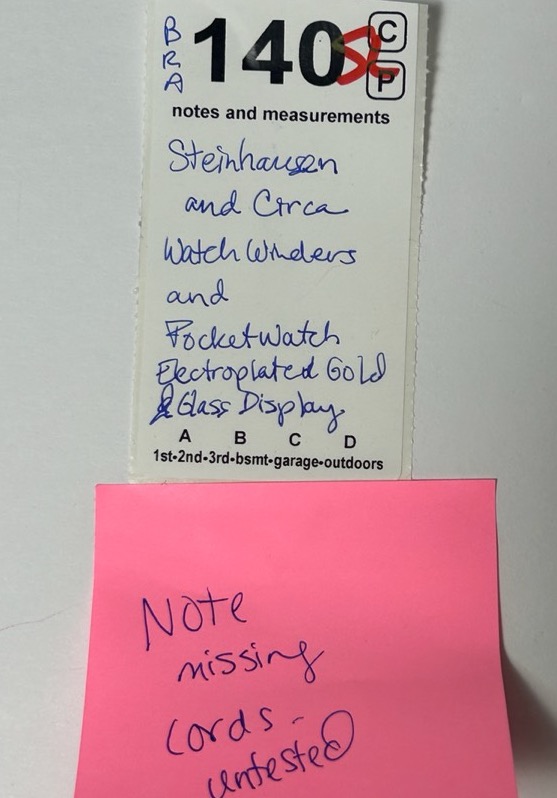 BRA 140 C
P
notes and measurements
Steinhausen
and Circa
Watch Winders
and
Pocketwatch
Electroplated Gold
& Glass Display
A B C D
1st•2nd•3rd•bsmt•garage•outdoors
Note
missing
cords -
untested